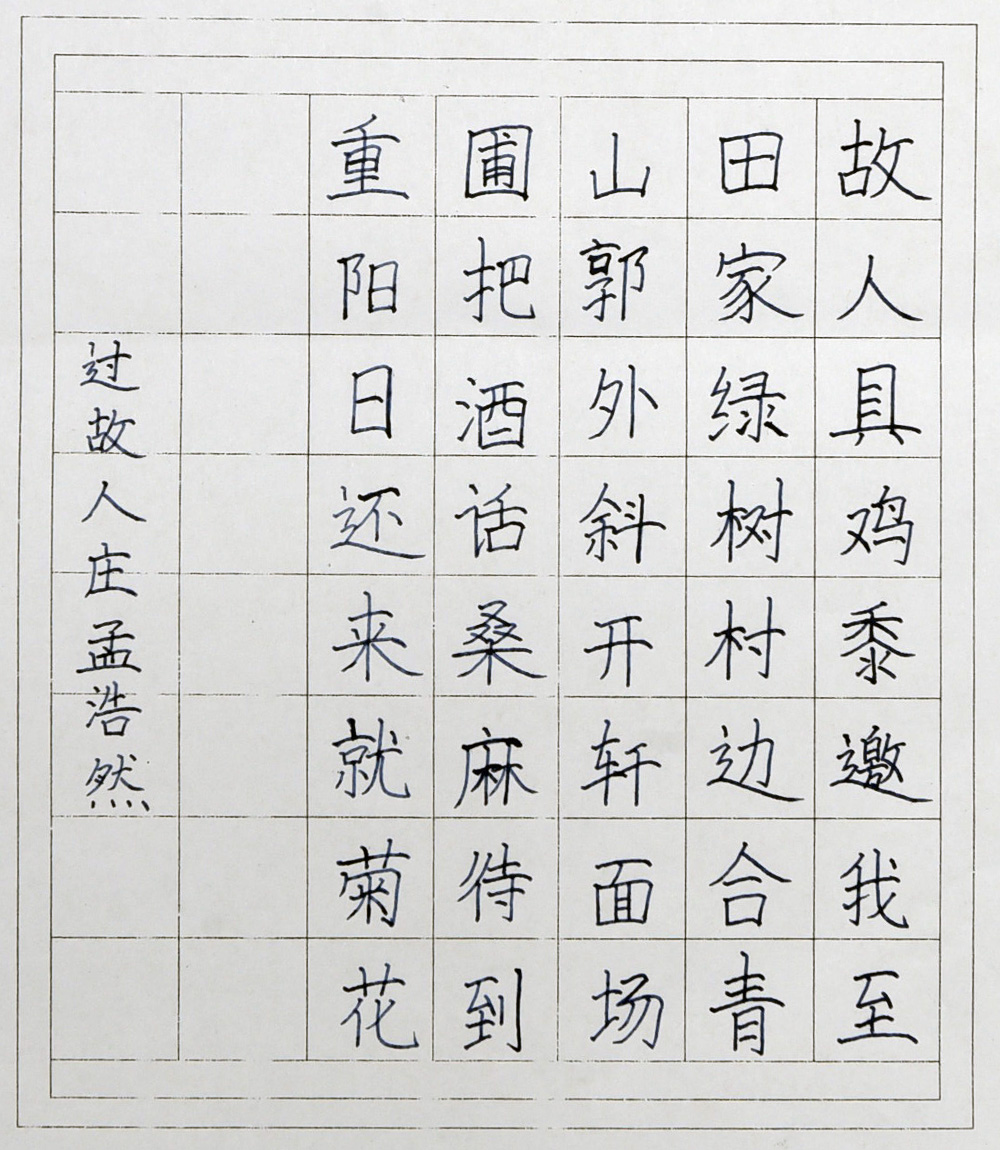 故人具鸡黍邀我至
田家绿树村边合青
山郭外斜开轩面场
圃把酒话桑麻待到
重阳日还来就菊花
过故人庄孟浩然